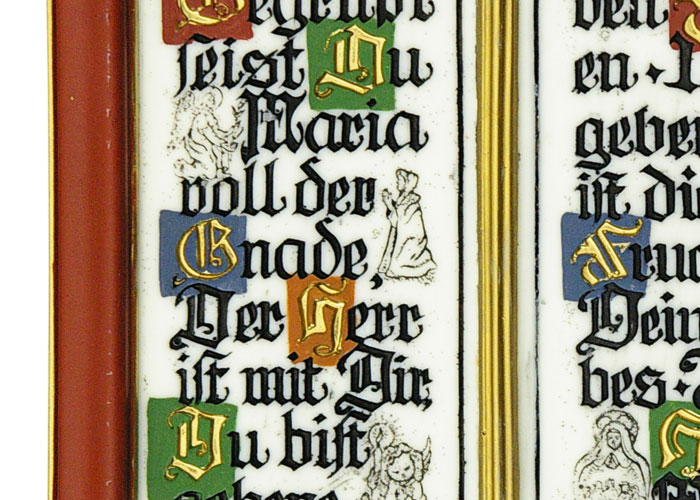 Gegrüßt
seist Du
Maria
voll der
Gnade,
Der Herr
ist mit Dir,
Du bist
gebene
en ·
gebe
ist di
Fruc
Dein
bes ·